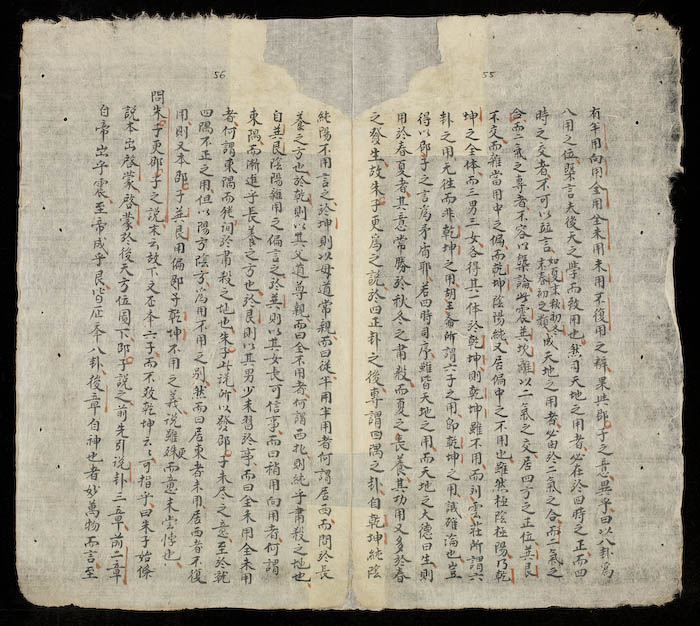 56
55
有半用向用全用全未用未用不復用之稱果與邵子之意異乎曰以八卦爲
八用之位槩言夫後天之學而致用也然司天地之用者必在於四時之正而四
時之交者不可以竝言如夏末秋初冬末春初之類成天地之用者必由於二氣之合而二氣之
合而二氣之專者不容以槩論此震兌坎離以二氣之交居四方之正位巽艮
不交而雜當用中之偏而乾坤陰陽純又居偏中之不用也雖然極陰極陽乃乾
坤之全体而三男三女各得其一体於乾坤則乾坤雖不用而雲莊所謂六
卦之用无徃而非乾坤之用胡玉齋所謂六子之用卽乾坤之用誠確論也豈
得以邵子之言爲矛盾耶若四時司序雖皆天地之用而天地之大德曰生則
用於春夏者其意常勝於秋冬之肅殺而夏之長養其功用又多於春
之發生故朱子更爲之說於四正卦之後專謂四隅之卦自乾坤純陰
純陽不用言之於坤則以母道常親而曰從半用半用者何謂居西而間於長
養之方也於乾則以其父道尊親而曰全不用者何謂西北則純乎肅殺之地也
自巽艮陰陽雜用之偏言之於巽則以其女長可信事而曰稍用向用者何謂
東隅而漸進乎長養之方也於艮則以其男少未習於事而曰全未用全未用
者何謂東隅而猶間於肅殺之地也朱子此說所以發邵子未尽之意至於乾
四隅不正之用但以陽方陰方爲用不用之別然而曰居東者未用居西者不復
用則又本邵子巽艮用偏邵子乾坤不用之義說雖殊而意未嘗悖也
問朱子更邵子之說末云故下文六子而不数乾坤云云可指乎曰朱子始條
說本出啓蒙啓蒙於後天方位圖下邵子說之前先引說卦三五章前二章
自帝出乎震至帝成乎艮皆八卦後章自神也者妙萬物而言至